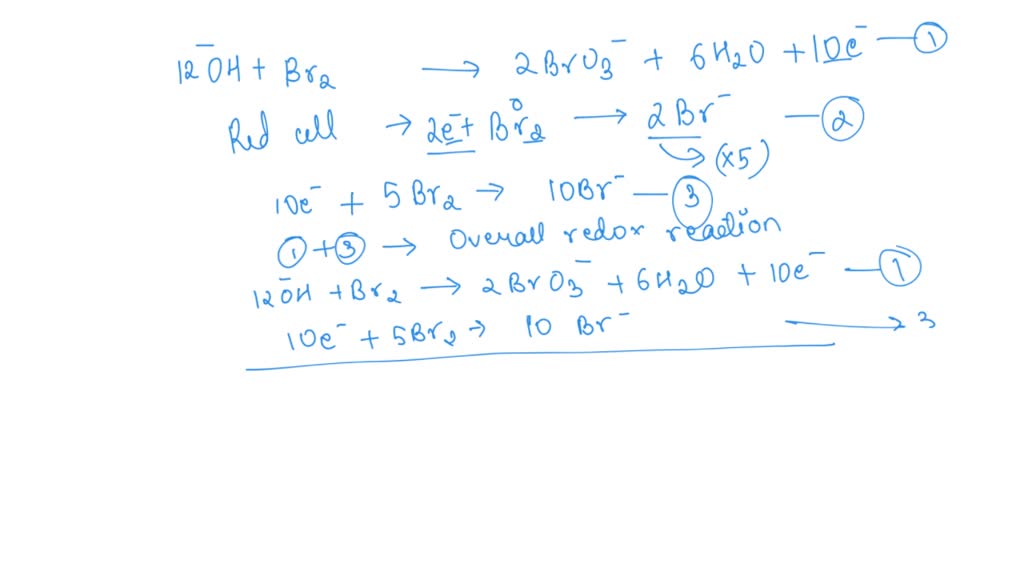 12 ⁻OH + Br₂ → 2BrO₃⁻ + 6H₂O + 10e⁻ — ①
Red cell → 2e⁻ + Br₂⁰ → 2Br⁻ — ②
(×5)
10e⁻ + 5Br₂ → 10Br⁻ — ③
① + ③ → Overall redox reaction
12 ⁻OH + Br₂ → 2BrO₃⁻ + 6H₂O + 10e⁻ — ①
10e⁻ + 5Br₂ → 10 Br⁻ → 3